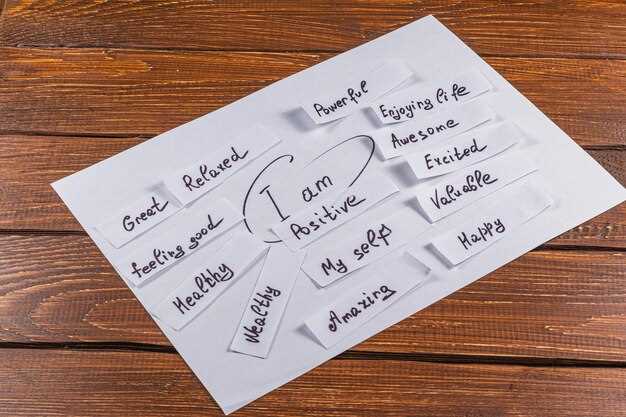 Powerful
Enjoying life
Awesome
Excited
Relaxed
I am
Valuable
Great
Positive
feeling good
My self
Happy
Healthy
Wealthy
Amazing